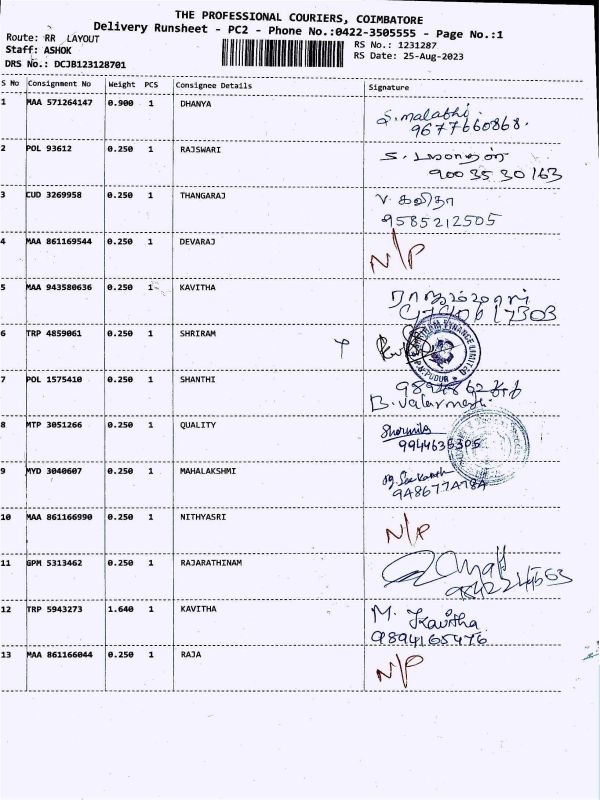 THE PROFESSIONAL COURIERS, COIMBATORE
Delivery Runsheet - PC2 - Phone No.:0422-3505555 - Page No.:1
Route: RR LAYOUT
Staff: ASHOK
DRS No.: DCJB123128701
RS No.: 1231287
RS Date: 25-Aug-2023
S No Consignment No Weight PCS Consignee Details Signature
1 MAA 571264147 0.900 1 DHANYA S. malathi
9677660868.
2 POL 93612 0.250 1 RAJSWARI
90035 30163
3 CUD 3269958 0.250 1 THANGARAJ V. கவிதா
9585212505
4 MAA 861169544 0.250 1 DEVARAJ N/P
5 MAA 943580636 0.250 1 KAVITHA
6 TRP 4859061 0.250 1 SHRIRAM
FINANCE LIMITED
7 POL 1575410 0.250 1 SHANTHI
B. Valarmathi
8 MTP 3051266 0.250 1 QUALITY Sharmila
9944636305
9 MYD 3040607 0.250 1 MAHALAKSHMI
10 MAA 861166990 0.250 1 NITHYASRI N/P
11 GPM 5313462 0.250 1 RAJARATHINAM
12 TRP 5943273 1.640 1 KAVITHA M. Kavitha
9894165476
13 MAA 861166044 0.250 1 RAJA N/P